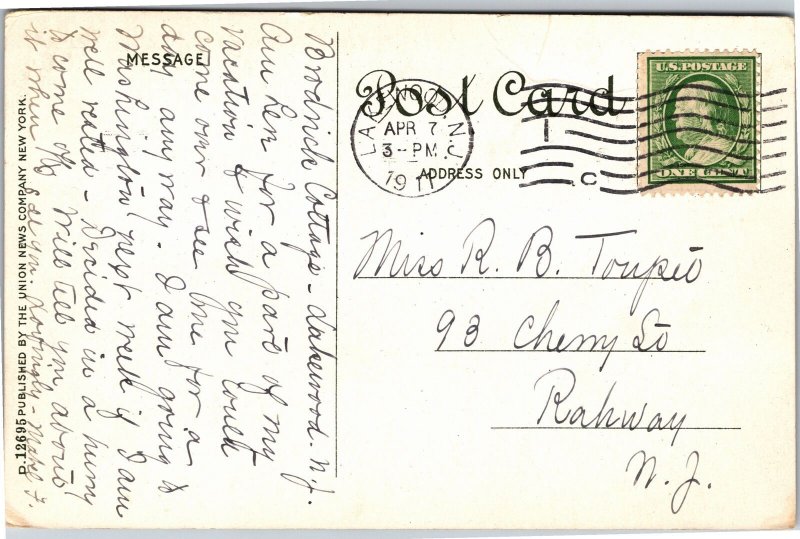 Post Card
MESSAGE
ADDRESS ONLY
U.S. POSTAGE
ONE CENT
LAKEWOOD, N.J.
APR 7
3-PM
1911
C
Miss R. B. Toupèt
93 Cherry St
Rahway
N. J.
Brodrick Cottage - Lakewood. N.J.
Am her for a part of my
vacation & wish you could
come over & see me for a
day any way. I am going to
Washington next week if I am
well rested - Decided in a hurry
to come off. Will tell you about
it when I see you. Lovingly - Mabel F.
D.12695 PUBLISHED BY THE UNION NEWS COMPANY NEW YORK.